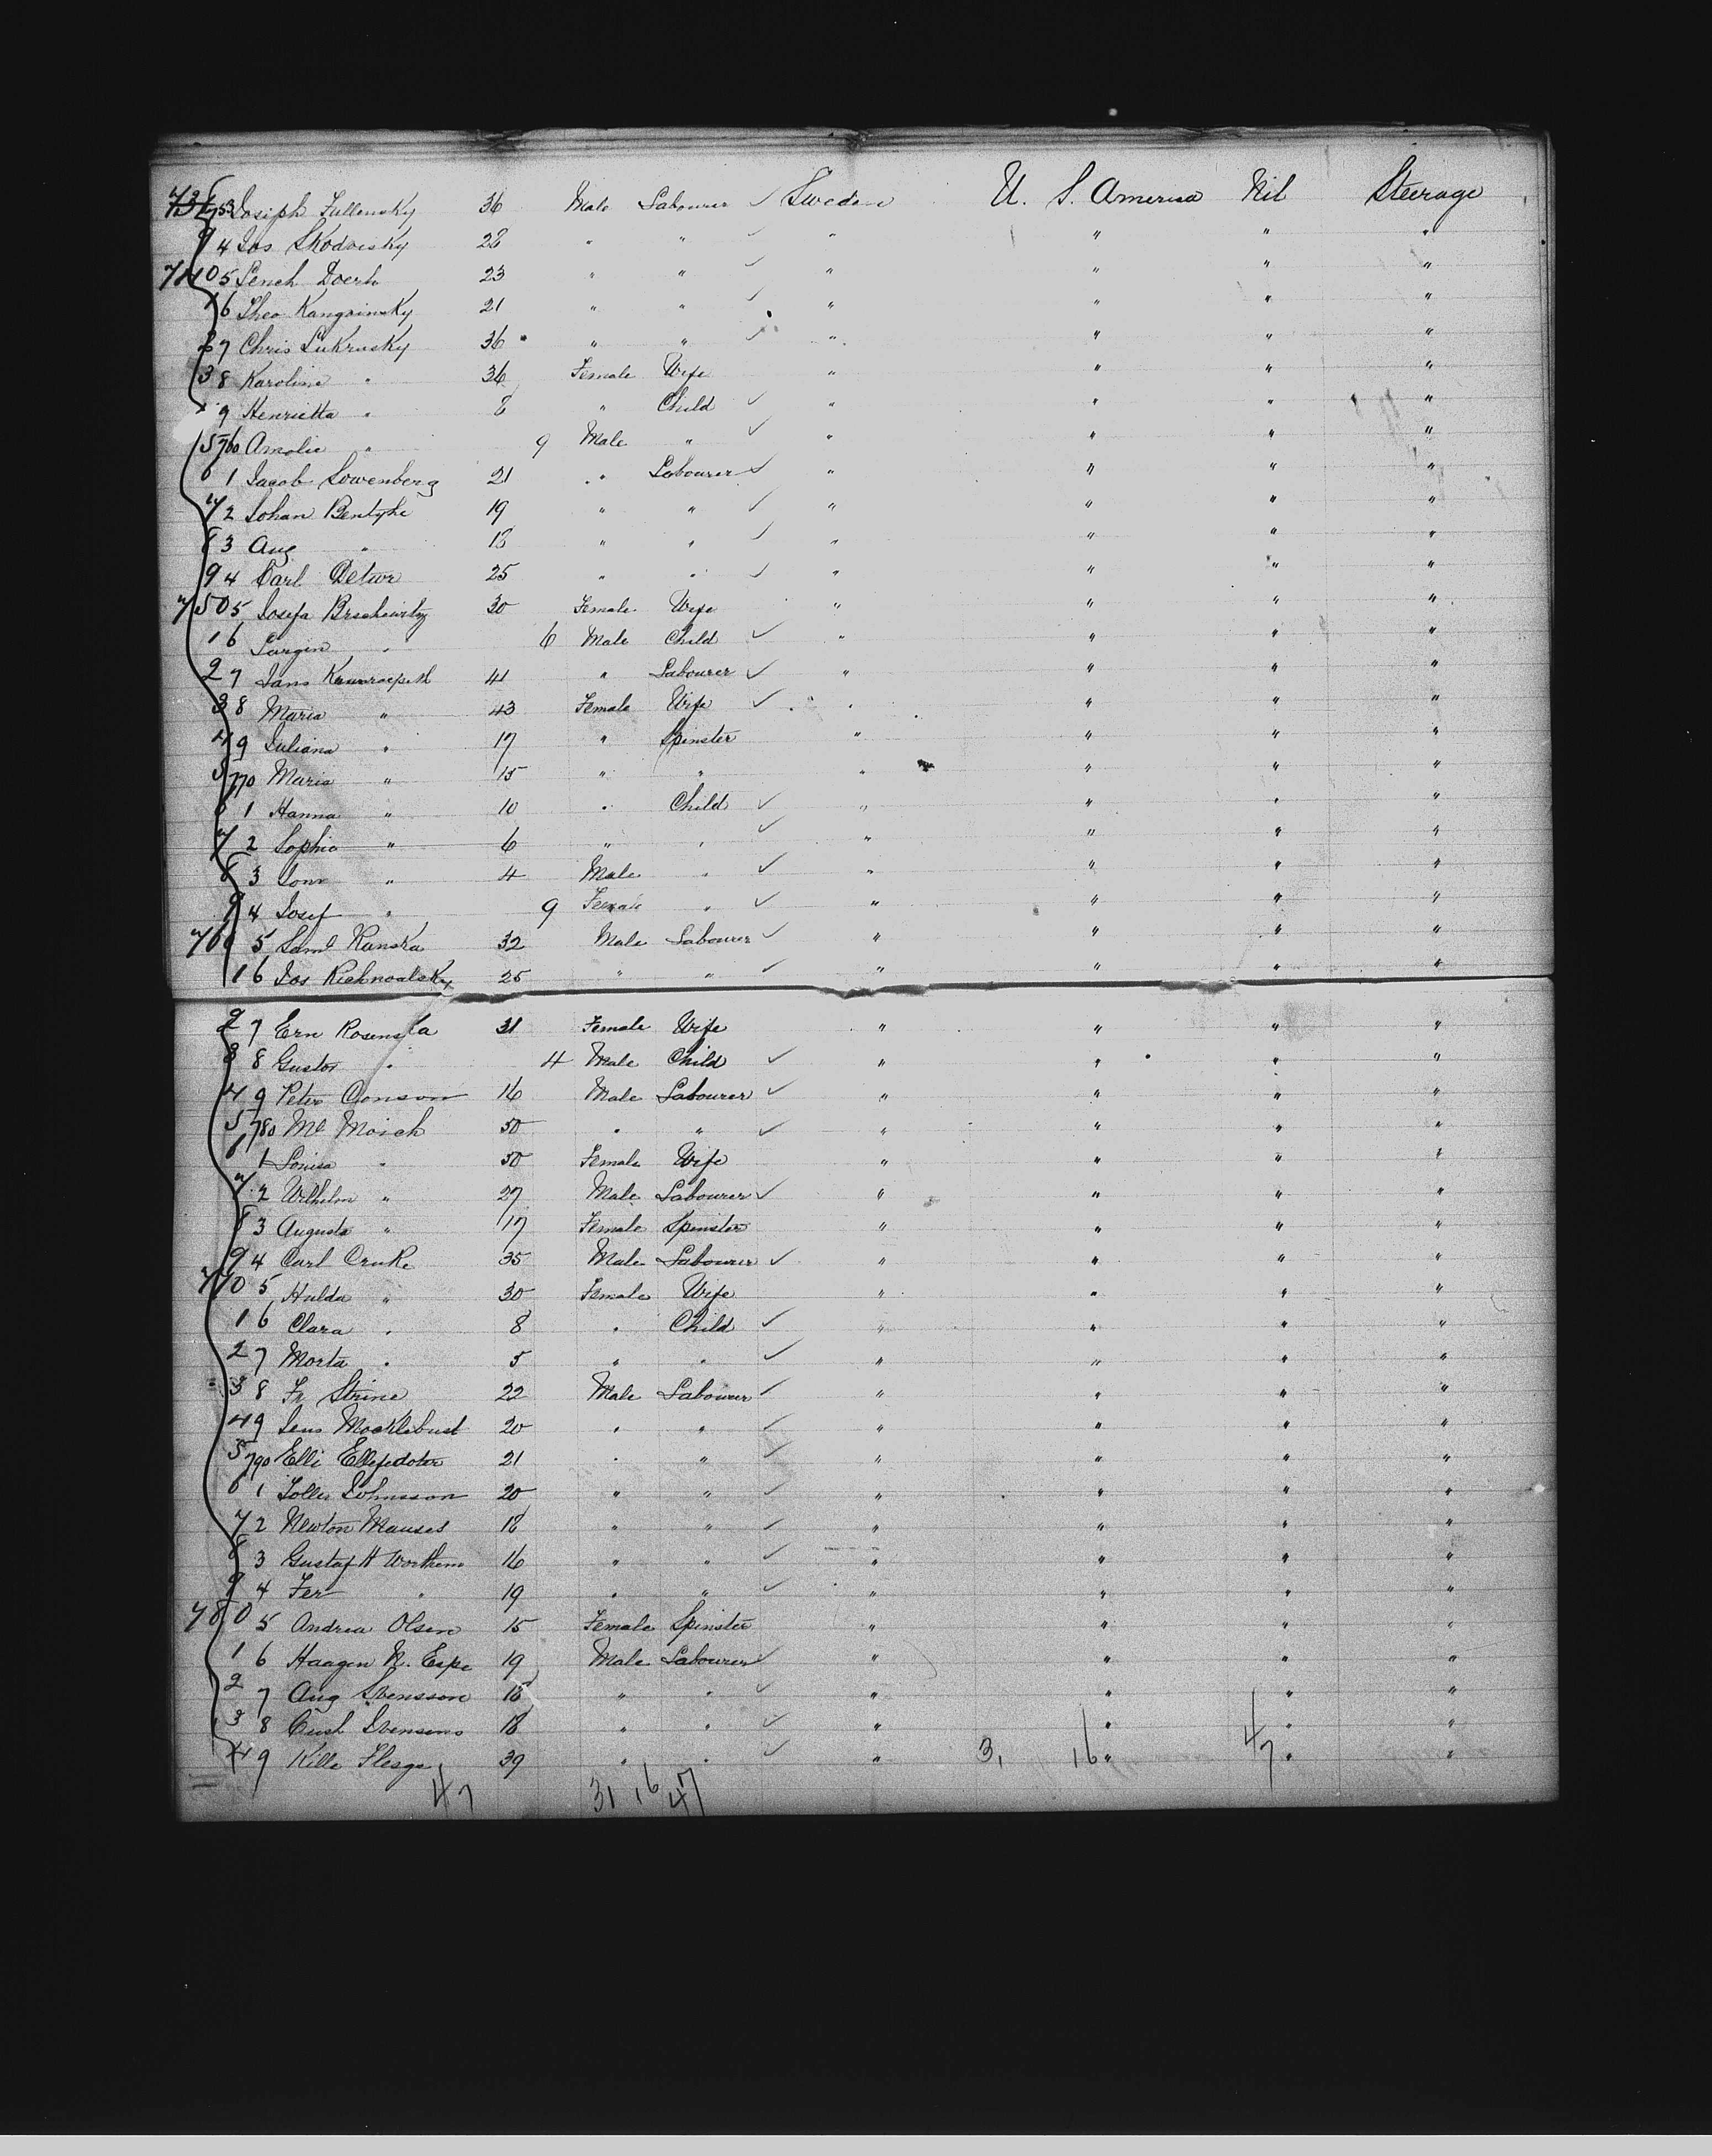 738 753 Joseph Fullensky 36 Male Labourer ✓ Sweden U. S. America Nil Steerage
9 4 Jos Skodoisky 28 " " ✓ " " " "
740 5 23 " " ✓ " " " "
1 6 Theo 21 " " ✓ " " " "
2 7 Chris Lukrusky 36 " " ✓ " " " "
3 8 Karoline " 36 Female Wife " " " "
9 Henrietta " 8 " Child ✓ " " " "
5 760 Amolie " 9 Male " ✓ " " " "
6 1 Jacob Lowenberg 21 " Labourer ✓ " " " "
7 2 Johan Bentzke 19 " " ✓ " " " "
8 3 Aug " 18 " " ✓ " " " "
9 4 Carl Detwr 25 " " ✓ " " " "
750 5 Josefa 30 Female Wife " " " "
1 6 Surgin " 6 Male Child ✓ " " " "
2 7 Jans 41 " Labourer ✓ " " " "
3 8 Maria " 43 Female Wife ✓ " " " "
4 9 Juliana " 17 " Spinster " " " "
5 770 Maria " 15 " " " " " "
6 1 Hanna " 10 " Child ✓ " " " "
7 2 Sophia " 6 " " ✓ " " " "
8 3 " 4 Male " ✓ " " " "
9 4 Josef " 9 Female " ✓ " " " "
760 5 Saml Kanska 32 Male Labourer ✓ " " " "
1 6 Jos Kichnoalsky 25 " " ✓ " " " "
2 7 Ern Rosenska 31 Female Wife " " " "
3 8 Gustov " 4 Male Child ✓ " " " "
4 9 Peter Conson 16 Male Labourer ✓ " " " "
5 780 Ml Moich 50 " " ✓ " " " "
6 1 Louisa " 50 Female Wife " " " "
7 2 Wilhelm " 27 Male Labourer ✓ " " " "
8 3 Augusta " 17 Female Spinster " " " "
9 4 Carl Cruke 35 Male Labourer ✓ " " " "
770 5 Hulda " 30 Female Wife " " " "
1 6 Clara " 8 " Child ✓ " " " "
2 7 Morta " 5 " " ✓ " " " "
3 8 Fr Strine 22 Male Labourer ✓ " " " "
4 9 Jens Mocklebust 20 " " ✓ " " " "
5 790 Elli Ellefsdoter 21 " " ✓ " " " "
6 1 Johnsson 20 " " ✓ " " " "
7 2 Newton Mauses 18 " " ✓ " " " "
8 3 Gustaf H 16 " " ✓ " " " "
9 4 Fer " 19 " " ✓ " " " "
780 5 Andrea Olsen 15 Female Spinster " " " "
1 6 Haagen N. Espe 19 Male Labourer ✓ " " " "
2 7 Aug Svensson 18 " " ✓ " " " "
3 8 18 " " ✓ " " " "
4 9 Kille Flesga 39 " " ✓ " 31 16 " 47 " "
47 31 16 47